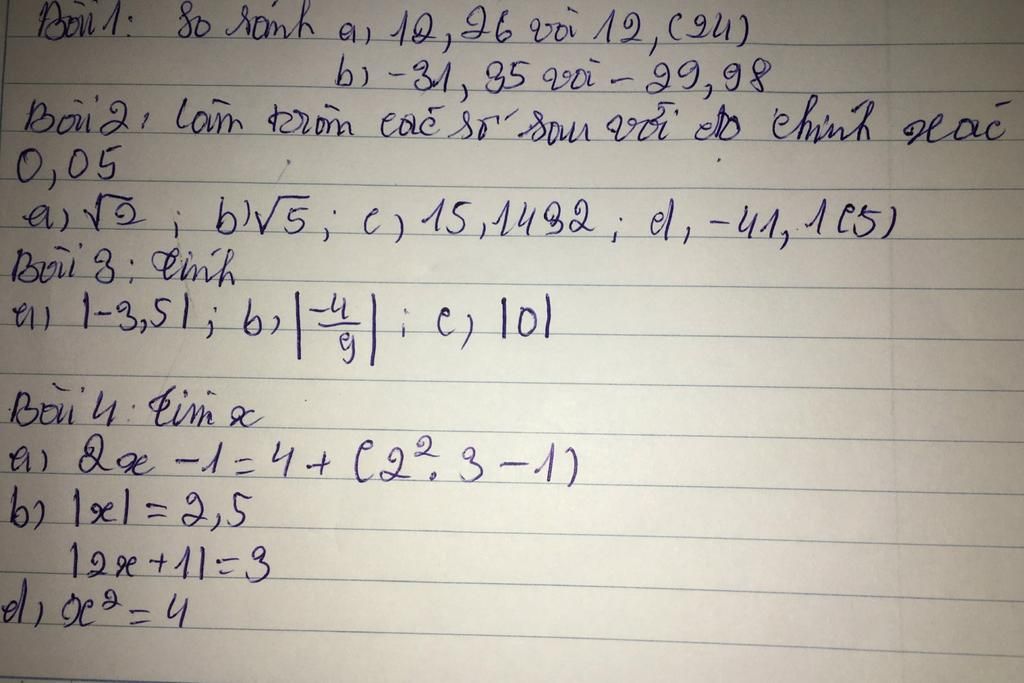 Bài 1: So sánh a) 12,26 với 12,(24)
b) -31,35 với -29,98
Bài 2: làm tròn các số sau với độ chính xác
0,05
a) √2 ; b) √5 ; c) 15,1492 ; d, -41,1(5)
Bài 3: tính
a) |-3,5| ; b) |-4/9| ; c) |0|
Bài 4: tìm x
a) 2x - 1 = 4 + (2².3 - 1)
b) |x| = 2,5
|2x + 1| = 3
d) x² = 4